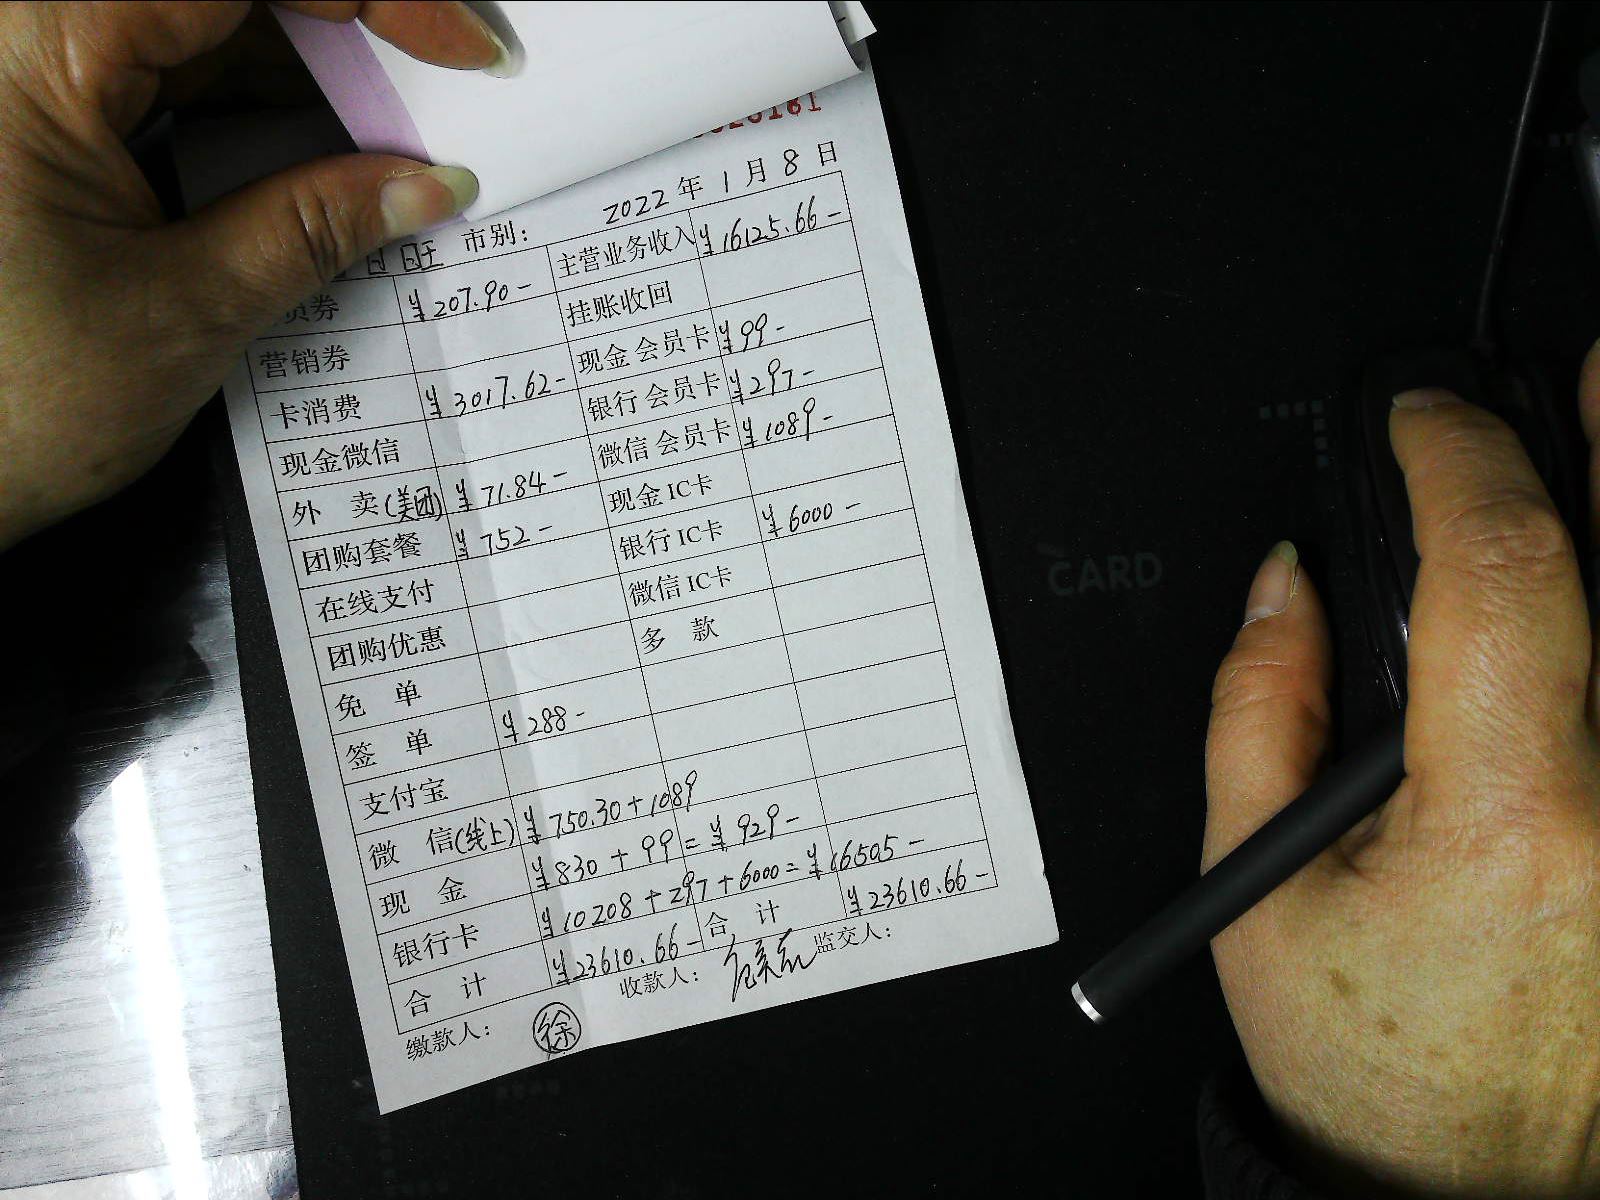 2022年1月8日
日旺 市别:
员券 ¥207.90- 主营业务收入 ¥16125.66-
营销券 挂账收回
卡消费 ¥3017.62- 现金会员卡 ¥99-
现金微信 银行会员卡 ¥297-
外 卖(美团) ¥71.84- 微信会员卡 ¥1089-
团购套餐 ¥752- 现金IC卡
在线支付 银行IC卡 ¥6000-
团购优惠 微信IC卡
免 单 多 款
签 单 ¥288-
支付宝
微 信(线上) ¥750.30+1089
现 金 ¥830+99=¥929-
银行卡 ¥10208+297+6000=¥16505-
合 计 ¥23610.66- 合 计 ¥23610.66-
缴款人: 徐 收款人: 监交人:
CARD